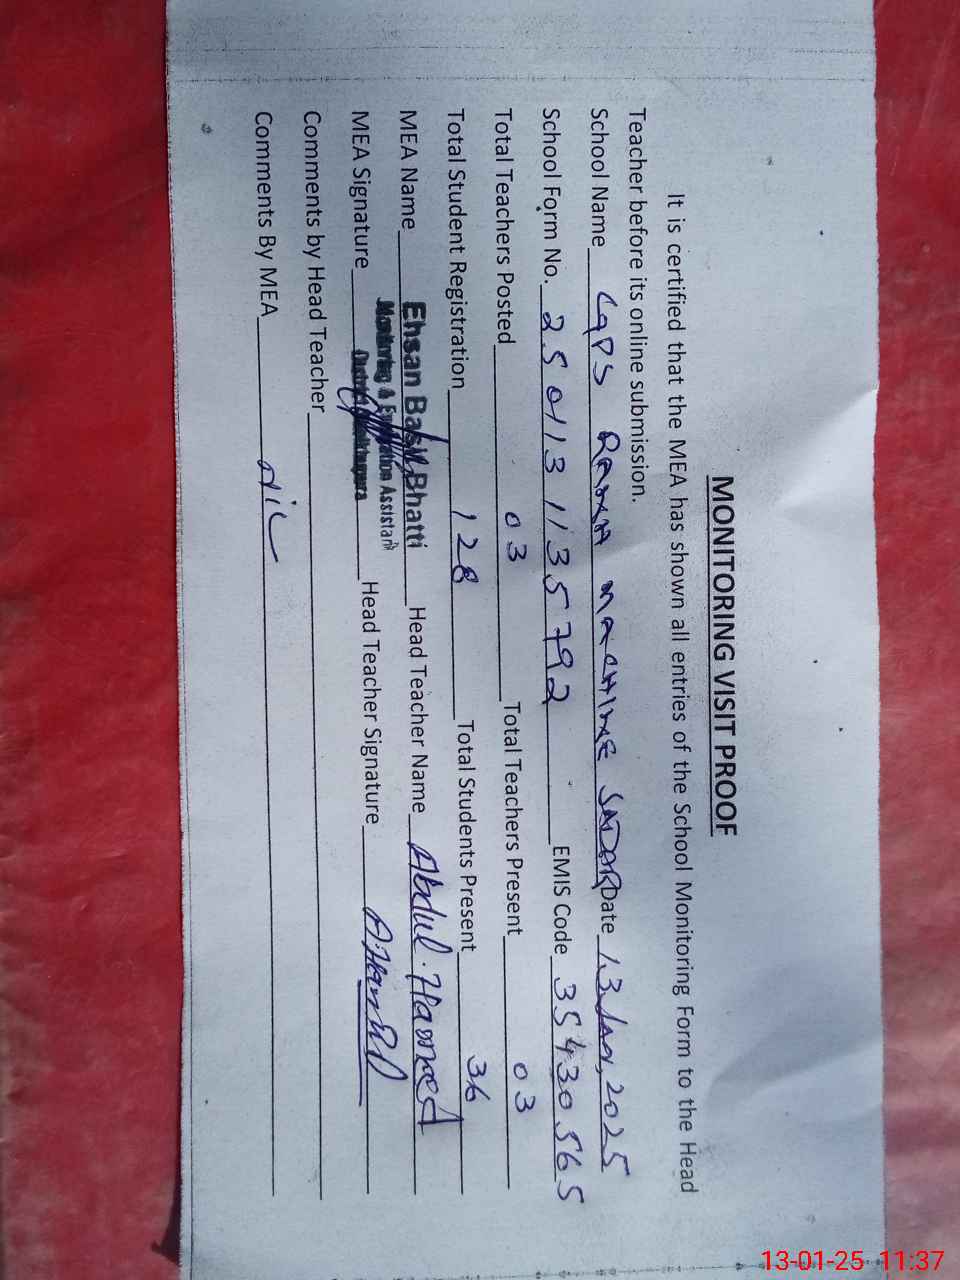 MONITORING VISIT PROOF
It is certified that the MEA has shown all entries of the School Monitoring Form to the Head
Teacher before its online submission.
School Name GPS RAMNA MACHINE SADAR Date 13 Jan, 2025
School Form No. 250113 1135792 EMIS Code 35430565
Total Teachers Posted 03 Total Teachers Present 03
Total Student Registration 128 Total Students Present 36
MEA Name Ehsan Basit Bhatti Head Teacher Name Abdul Hameed
Monitoring & Evaluation Assistant
MEA Signature District Head Teacher Signature A.Hameed
Comments by Head Teacher
Comments By MEA Nil
13-01-25 11:37